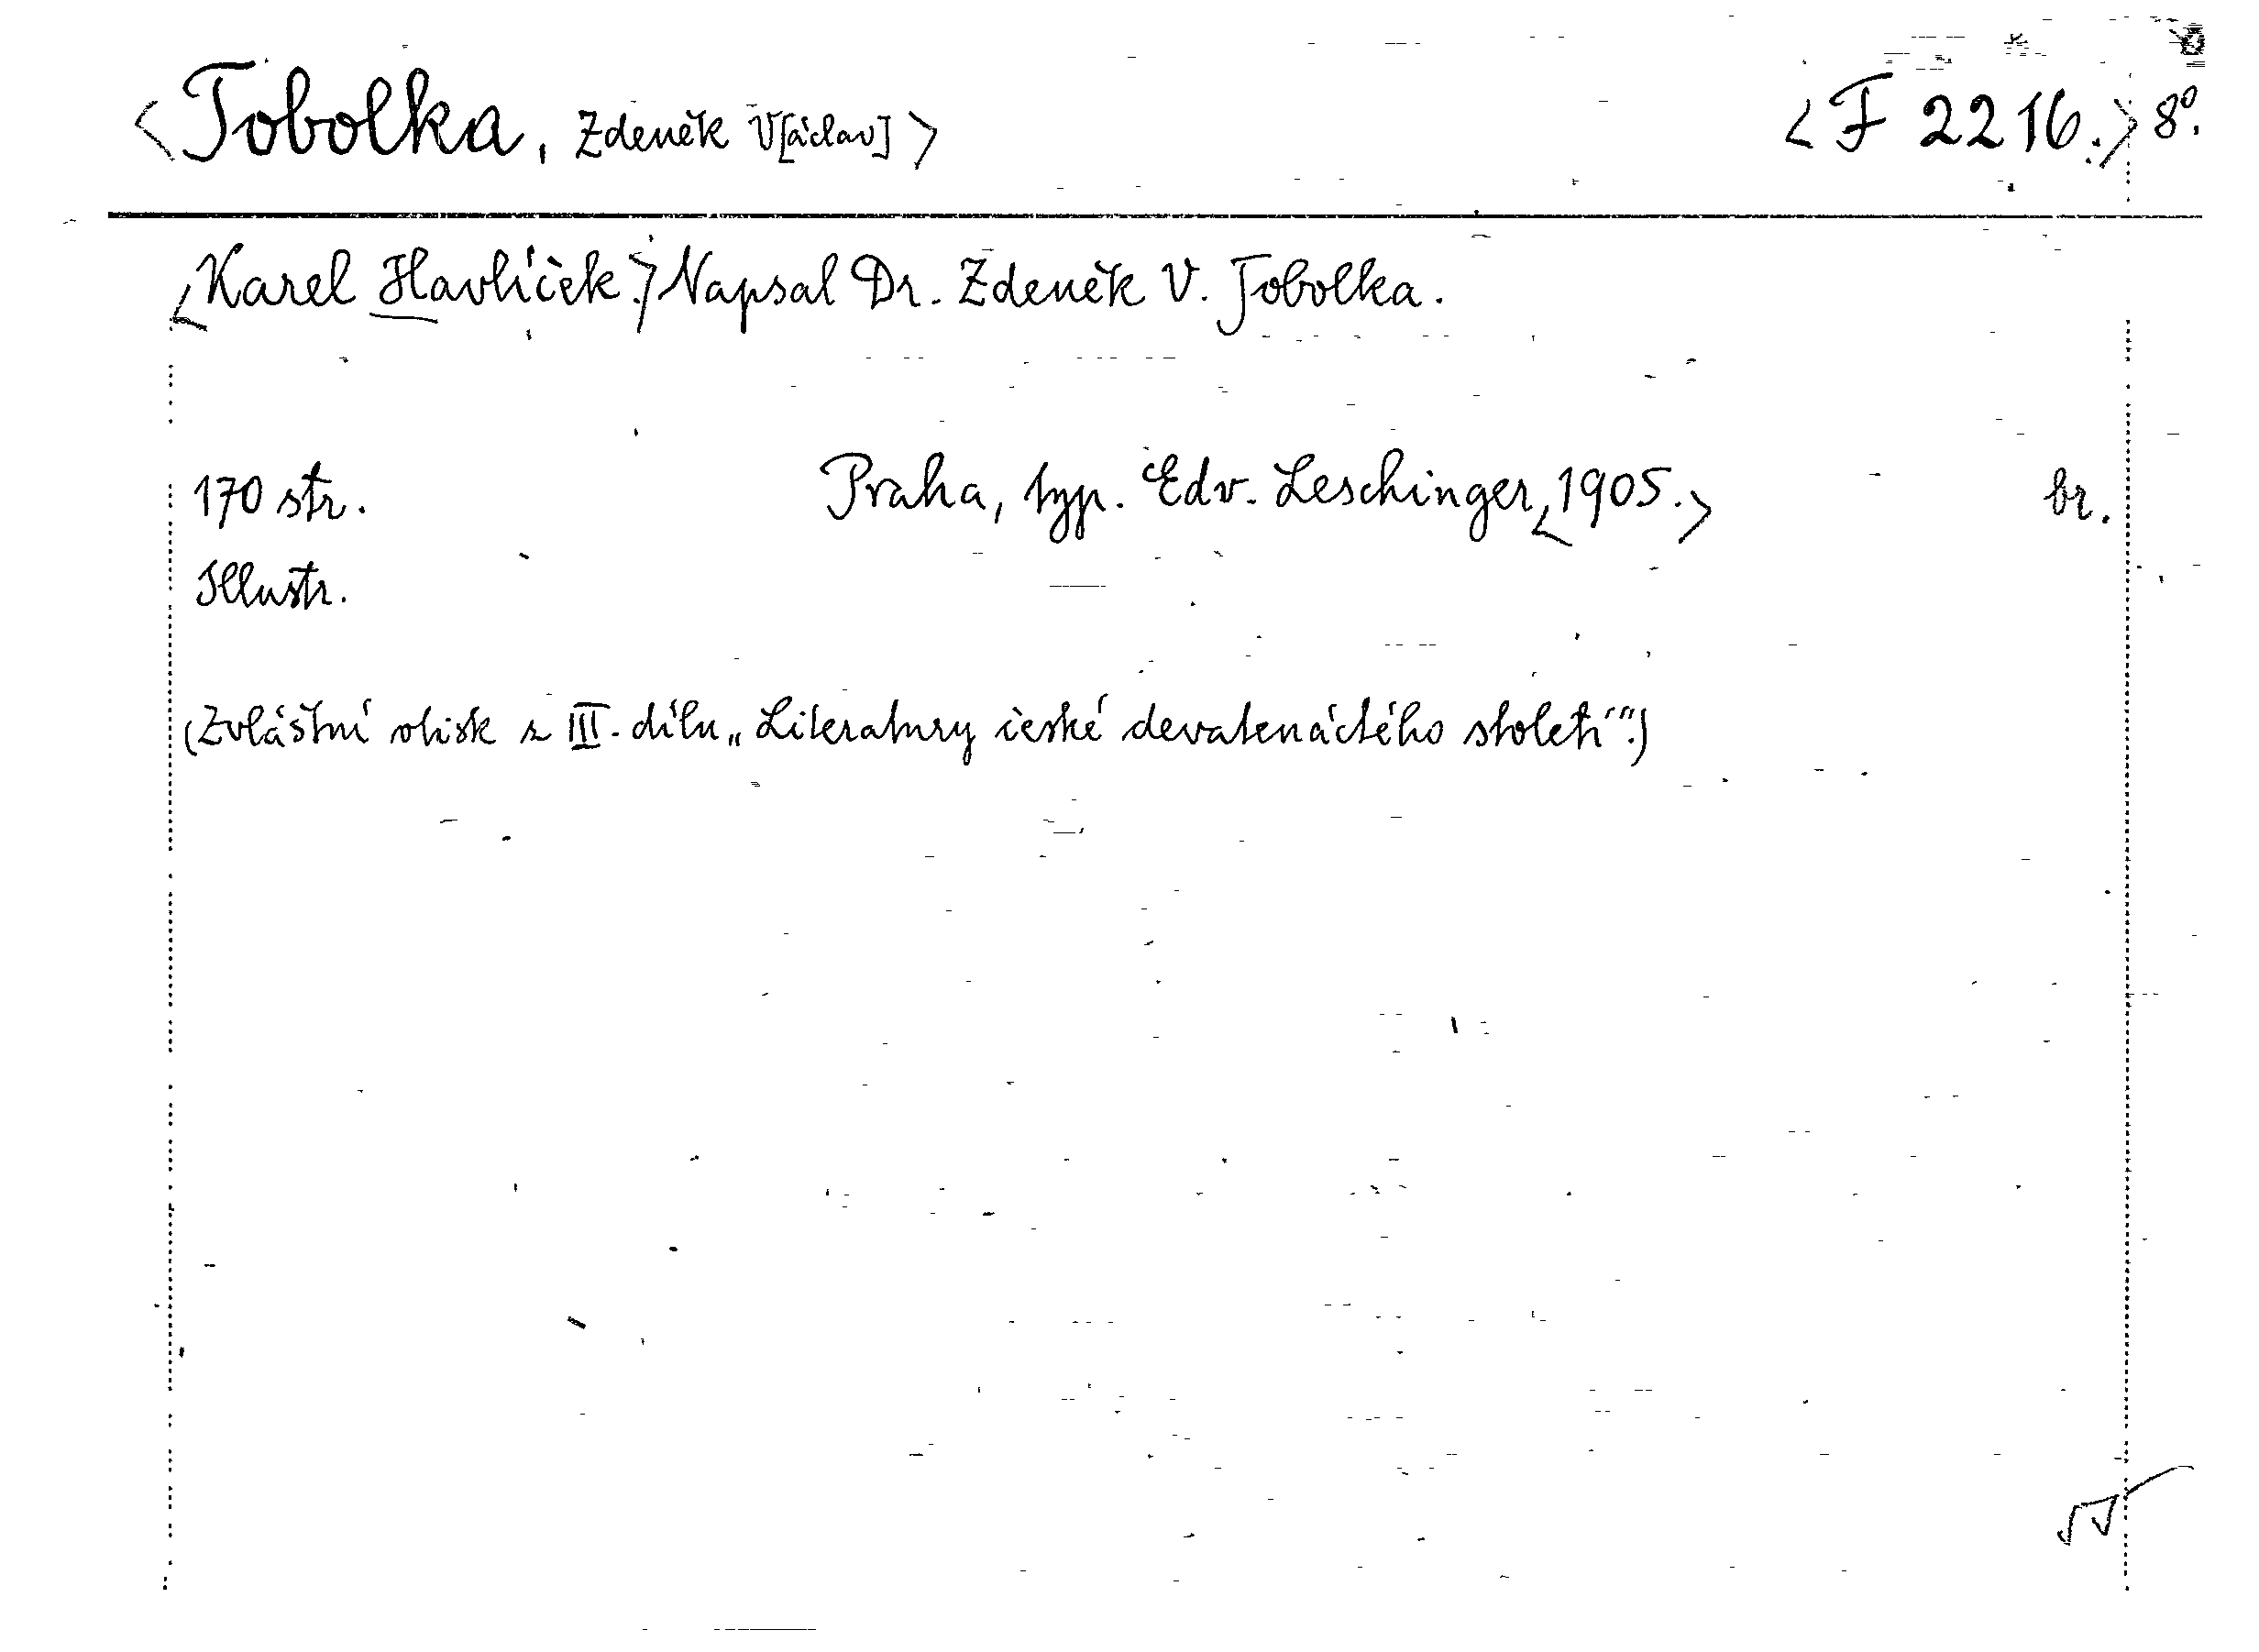 <Tobolka, Zdeněk V[áclav]> <F 2216.> 8°.
<Karel Havlíček.> Napsal Dr. Zdeněk V. Tobolka.
170 str. Praha, typ. Edv. Leschinger, <1905.> br.
Illustr.
(Zvláštní otisk z III. dílu „Literatury české devatenáctého století“.)